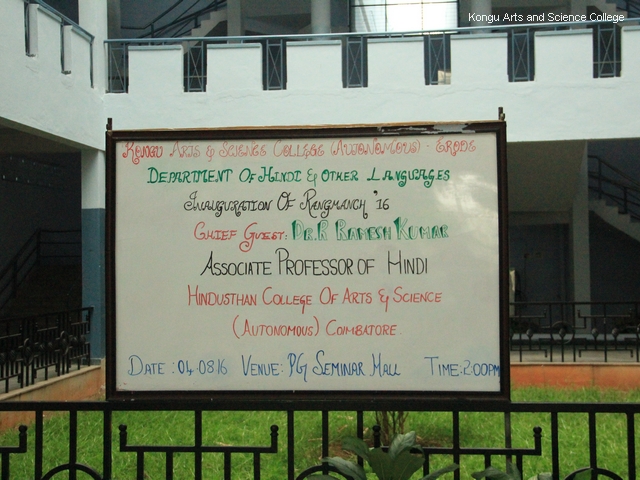 Kongu Arts and Science College
KONGU ARTS & SCIENCE COLLEGE (AUTONOMOUS) - ERODE
DEPARTMENT OF HINDI & OTHER LANGUAGES
INAUGURATION OF RANGMANCH '16
CHIEF GUEST: DR.R RAMESH KUMAR
ASSOCIATE PROFESSOR OF HINDI
HINDUSTHAN COLLEGE OF ARTS & SCIENCE
(AUTONOMOUS) COIMBATORE
DATE: 04.08.16 VENUE: PG SEMINAR HALL TIME: 2:00PM